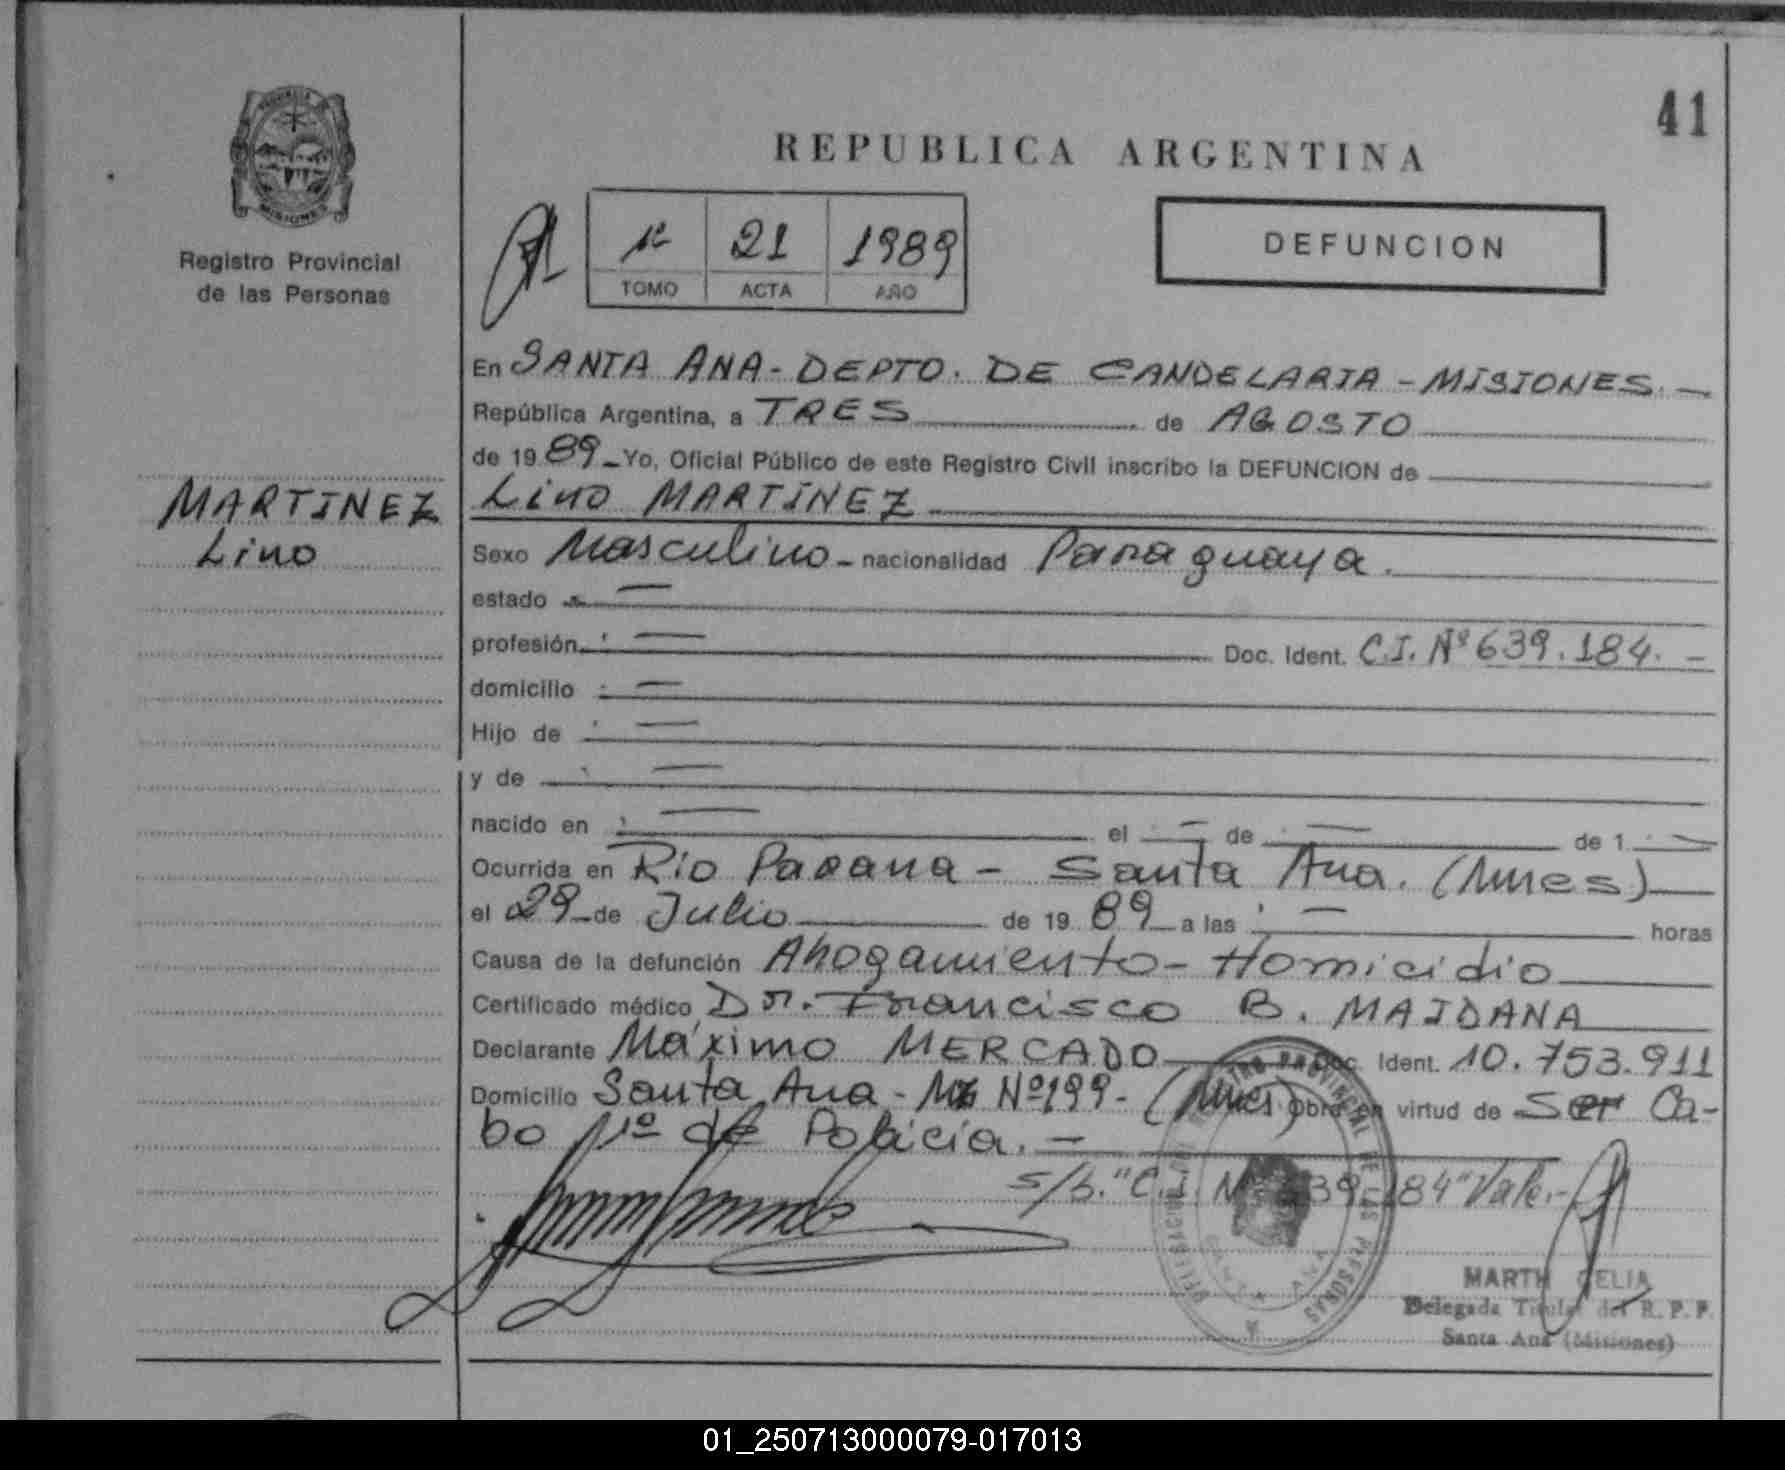 41
REPUBLICA ARGENTINA
PROVINCIA DE
MISIONES
Registro Provincial
de las Personas
1º 21 1989
TOMO ACTA AÑO
DEFUNCION
En SANTA ANA - DEPTO. DE CANDELARIA - MISIONES. -
República Argentina, a TRES de AGOSTO
de 19 89 - Yo, Oficial Público de este Registro Civil inscribo la DEFUNCION de
MARTINEZ
Lino
Lino MARTINEZ
Sexo Masculino - nacionalidad Paraguaya.
estado : —
profesión : — Doc. Ident. C.I. Nº 639.184. -
domicilio : —
Hijo de : —
y de : —
nacido en : — el : — de : — de 1 : —
Ocurrida en Río Parana - Santa Ana. (Mnes)
el 29 - de Julio de 19 89 a las : — horas
Causa de la defunción Ahogamiento - Homicidio
Certificado médico Dr. Francisco B. MAIDANA
Declarante Máximo MERCADO Doc. Ident. 10.753.911
Domicilio Santa Ana - Mz Nº 199 - (Mnes) Obra en virtud de Ser Ca-
bo 1º de Policía. -
s/b. "C.I. Nº 639.184" Vale. -
REGISTRO PROVINCIAL DE LAS PERSONAS
SANTA ANA
MARTH CELIA
Delegada Titular del R. P. P.
Santa Ana (Misiones)
01_250713000079-017013